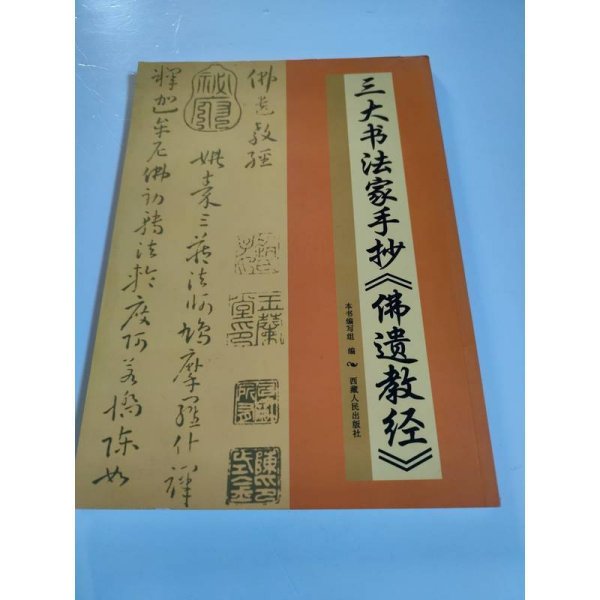 三大书法家手抄《佛遗教经》
本书编写组 编
西藏人民出版社
佛遗教经
姚秦三藏法师鸠摩罗什译
释迦牟尼佛初转法轮度阿若憍陈如